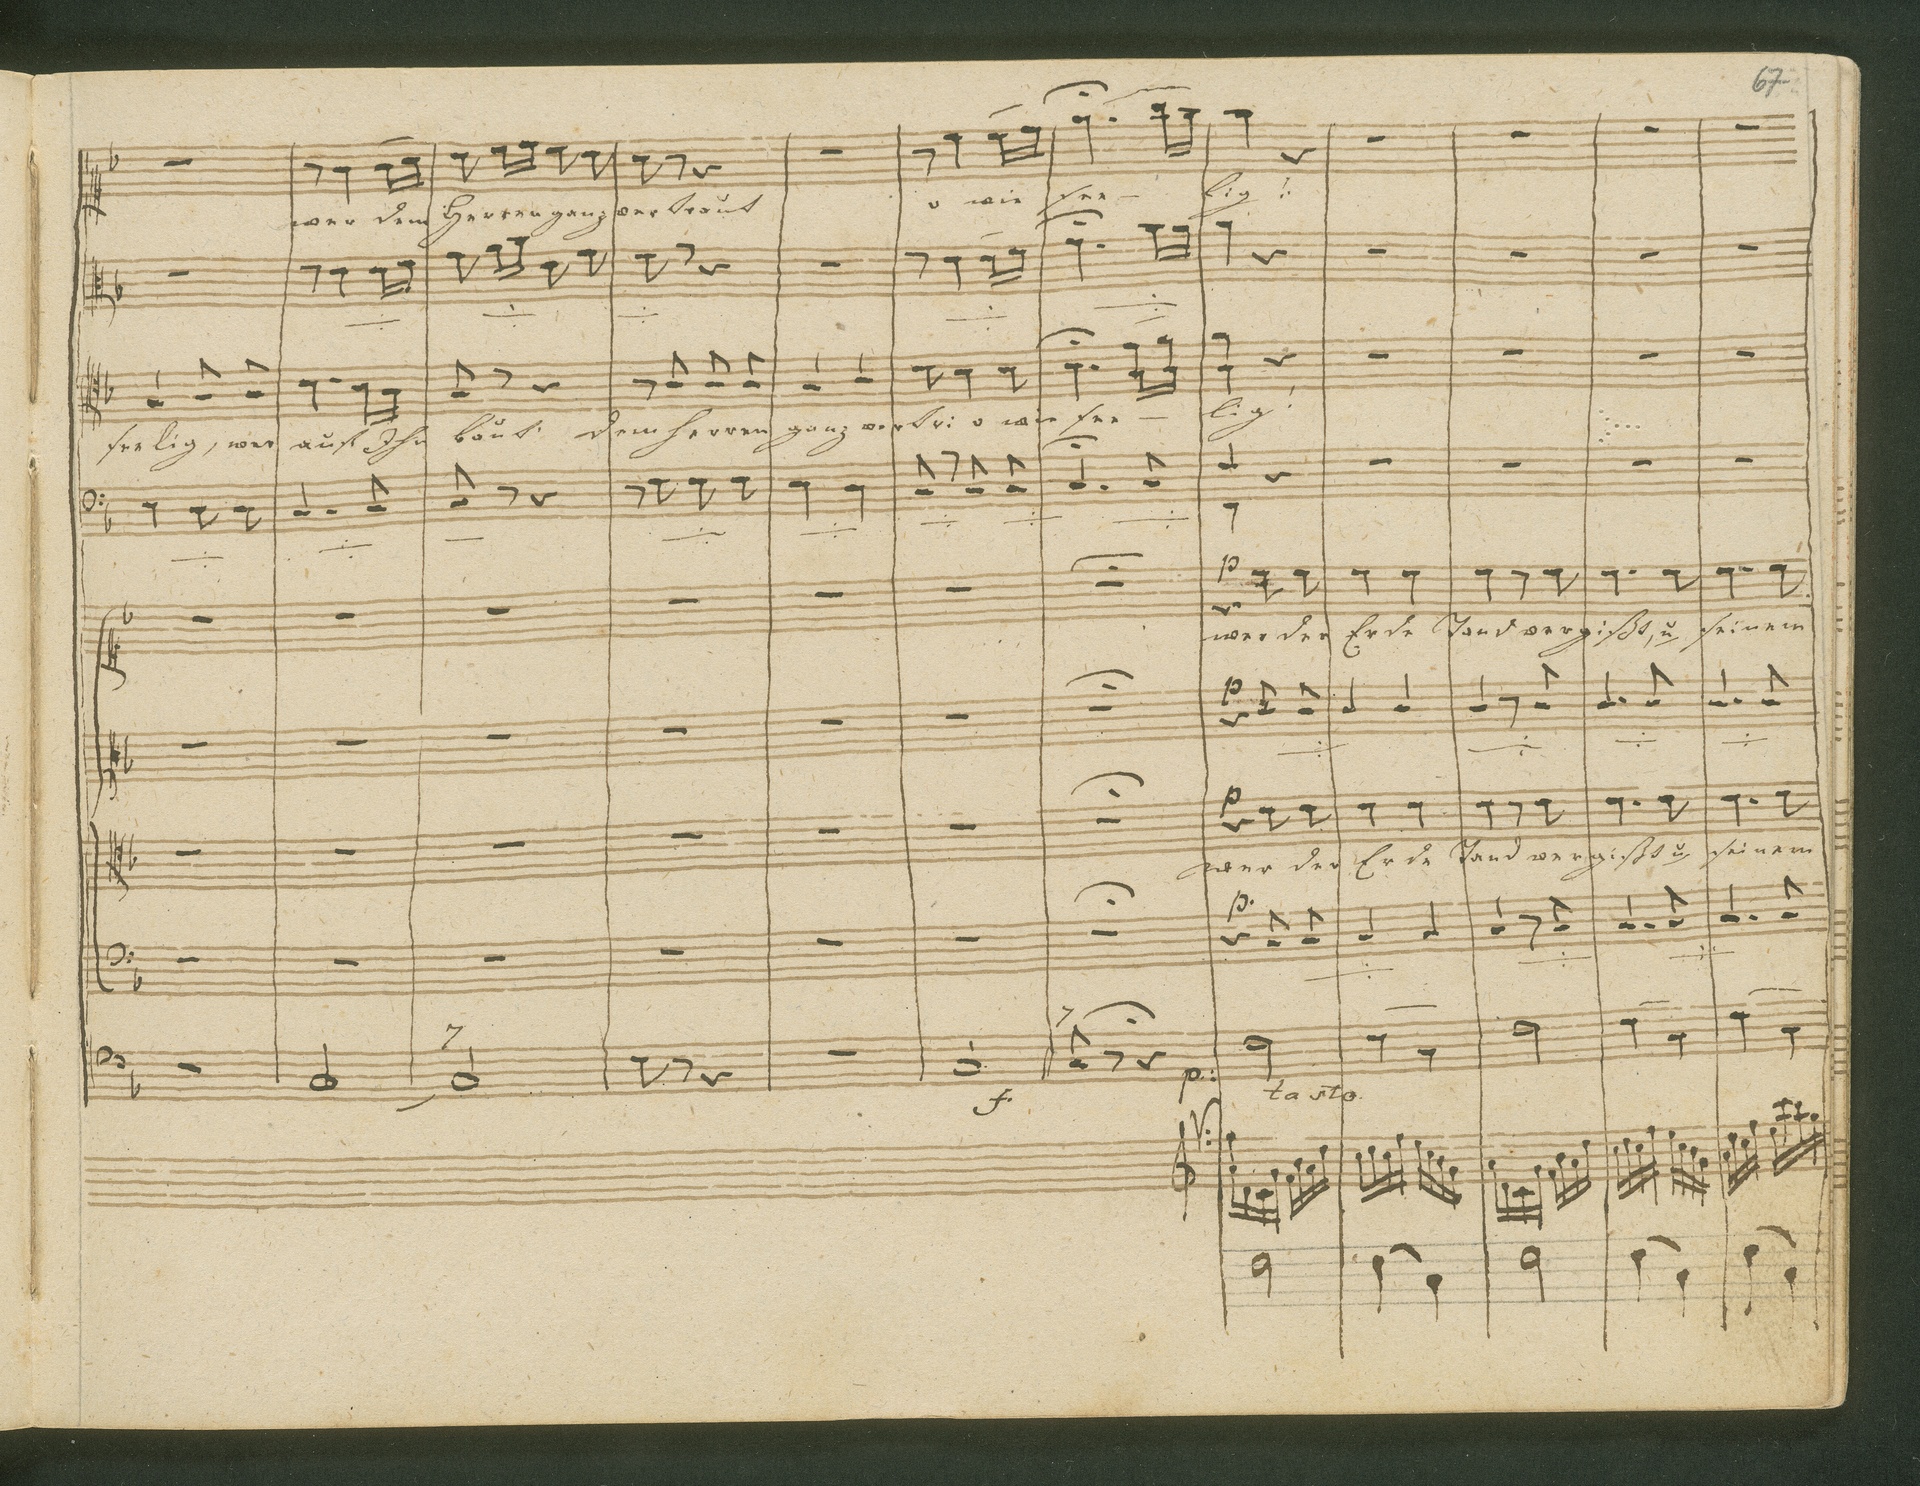 67
wer dem Herren ganz vertraut o wie see – lig!
seelig, wer auf Ihn baut dem Herren ganz vertr: o wie see – lig!
p
wer der Erde Tand vergißt, u seinem
p
p
wer der Erde Tand vergißt u seinem
p.
7 7
f. p.: tasto.
V: